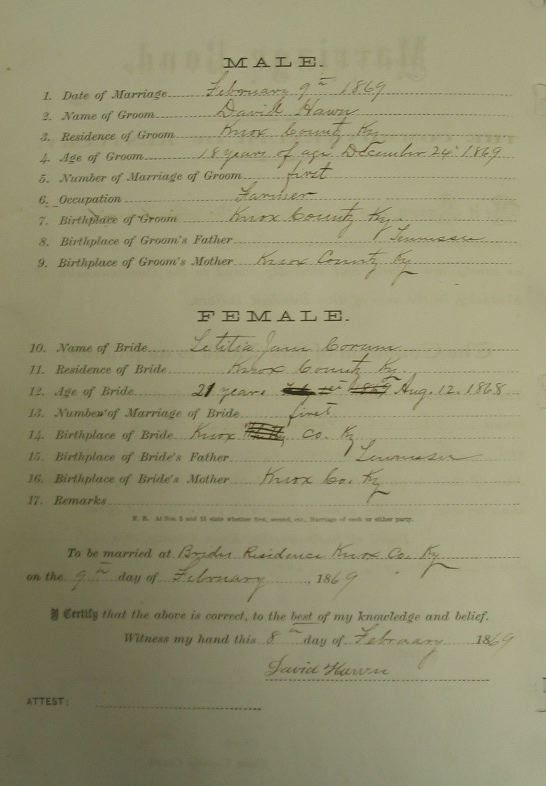 MALE.
1. Date of Marriage February 9th 1869
2. Name of Groom David Hawn
3. Residence of Groom Knox County Ky
4. Age of Groom 18 years of age December 24th 1869
5. Number of Marriage of Groom first
6. Occupation Farmer
7. Birthplace of Groom Knox County Ky
8. Birthplace of Groom's Father Tennessee
9. Birthplace of Groom's Mother Knox County Ky
FEMALE.
10. Name of Bride Letitia Jane Corum
11. Residence of Bride Knox County Ky.
12. Age of Bride 21 years Aug. 12. 1868
13. Number of Marriage of Bride first
14. Birthplace of Bride Knox Co. Ky
15. Birthplace of Bride's Father Tennessee
16. Birthplace of Bride's Mother Knox Co. Ky
17. Remarks
N. B. At Nos. 5 and 13 state whether first, second, etc., Marriage of each or either party.
To be married at Brides Residence Knox Co. Ky
on the 9th day of February, 1869
I Certify that the above is correct, to the best of my knowledge and belief.
Witness my hand this 8th day of February 1869
David Hawn
ATTEST: